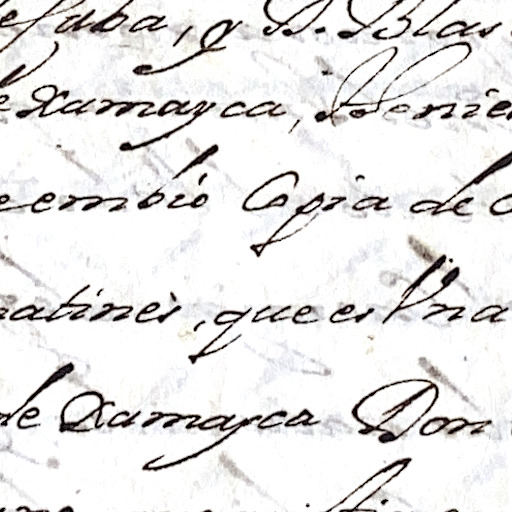 efaba, y D. Blas
e Xamayca, Thenie
e embió Copia de
matines, que es Vna
de Xamayca Don